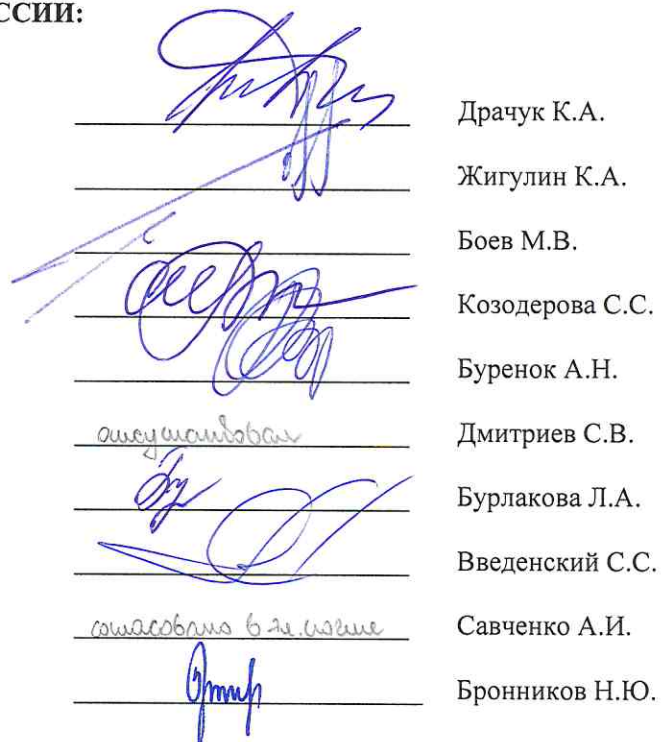 ССИИ:
Драчук К.А.
Жигулин К.А.
Боев М.В.
Козодерова С.С.
Буренок А.Н.
отсутствовал Дмитриев С.В.
Бурлакова Л.А.
Введенский С.С.
согласовано в эл. почте Савченко А.И.
Бронников Н.Ю.